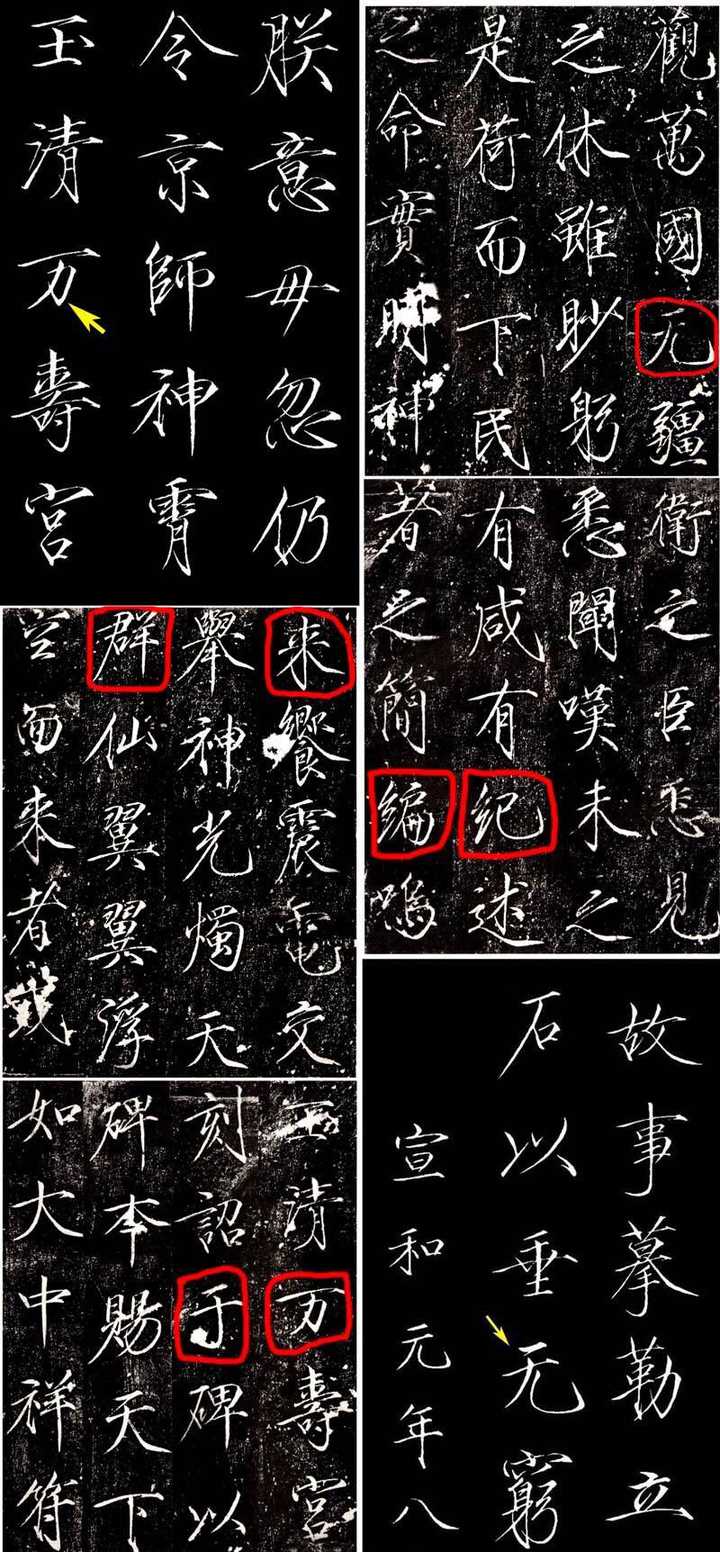 朕意毋忽仍
令京師神霄
玉清万壽宮
觀萬國无疆
之休雖眇躬
是荷而下民
之命實明神
衛之臣悉見
悉聞嘆未之
有咸有紀述
著之簡編嗚
来饗震電交
舉神光燭天
群仙翼翼浮
空而来者或
玉清万壽宮
刻詔于碑以
碑夲賜天下
如大中祥符
故事摹勒立
石以垂无窮
宣和元年八